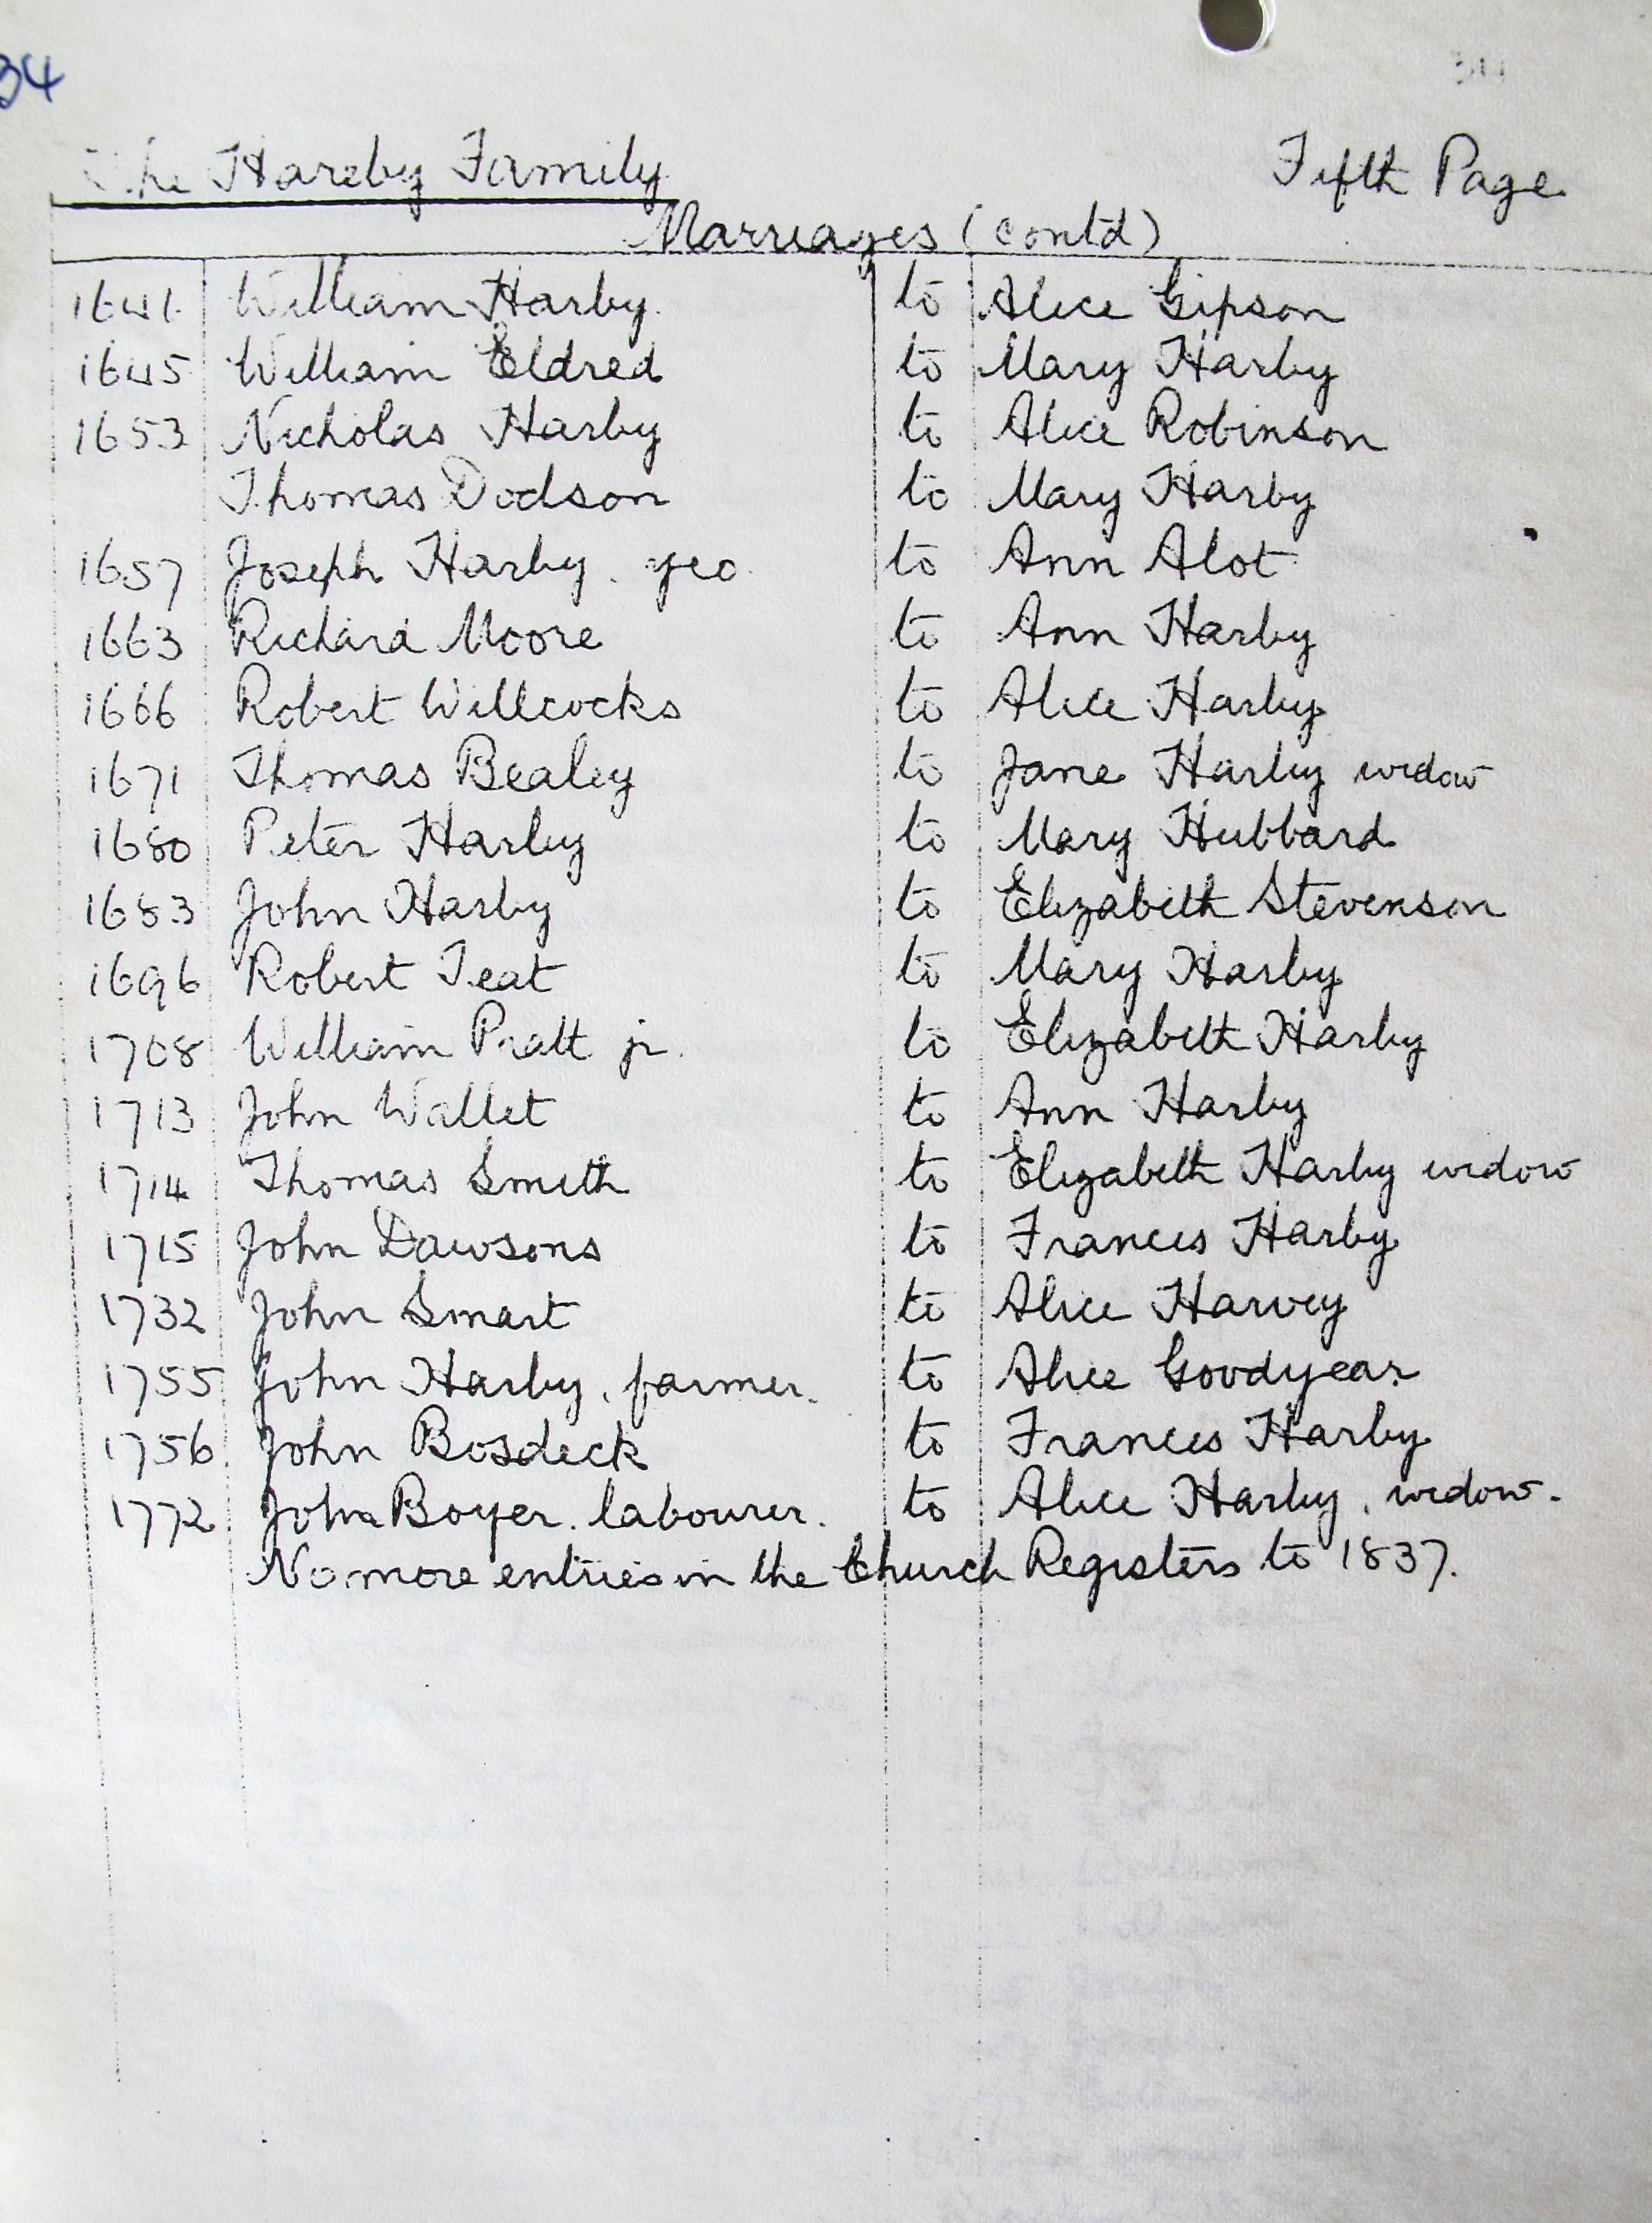 34
The Hareby Family Fifth Page
Marriages (contd)
1641 William Harby. to Alice Gipson
1645 William Eldred to Mary Harby
1653 Nicholas Harby to Alice Robinson
Thomas Dodson to Mary Harby
1657 Joseph Harby. yeo. to Ann Alot
1663 Richard Moore to Ann Harby
1666 Robert Willcocks to Alice Harby
1671 Thomas Bealey to Jane Harby widow
1680 Peter Harby to Mary Hubbard
1683 John Harby to Elizabeth Stevenson
1696 Robert Teat to Mary Harby
1708 William Pratt jr. to Elizabeth Harby
1713 John Wallet to Ann Harby
1714 Thomas Smith to Elizabeth Harby widow
1715 John Dawsons to Frances Harby
1732 John Smart to Alice Harvey
1755 John Harby, farmer. to Alice Goodyear
1756 John Bosdeck to Frances Harby
1772 John Boyer. labourer. to Alice Harby, widow.
No more entries in the Church Registers to 1837.